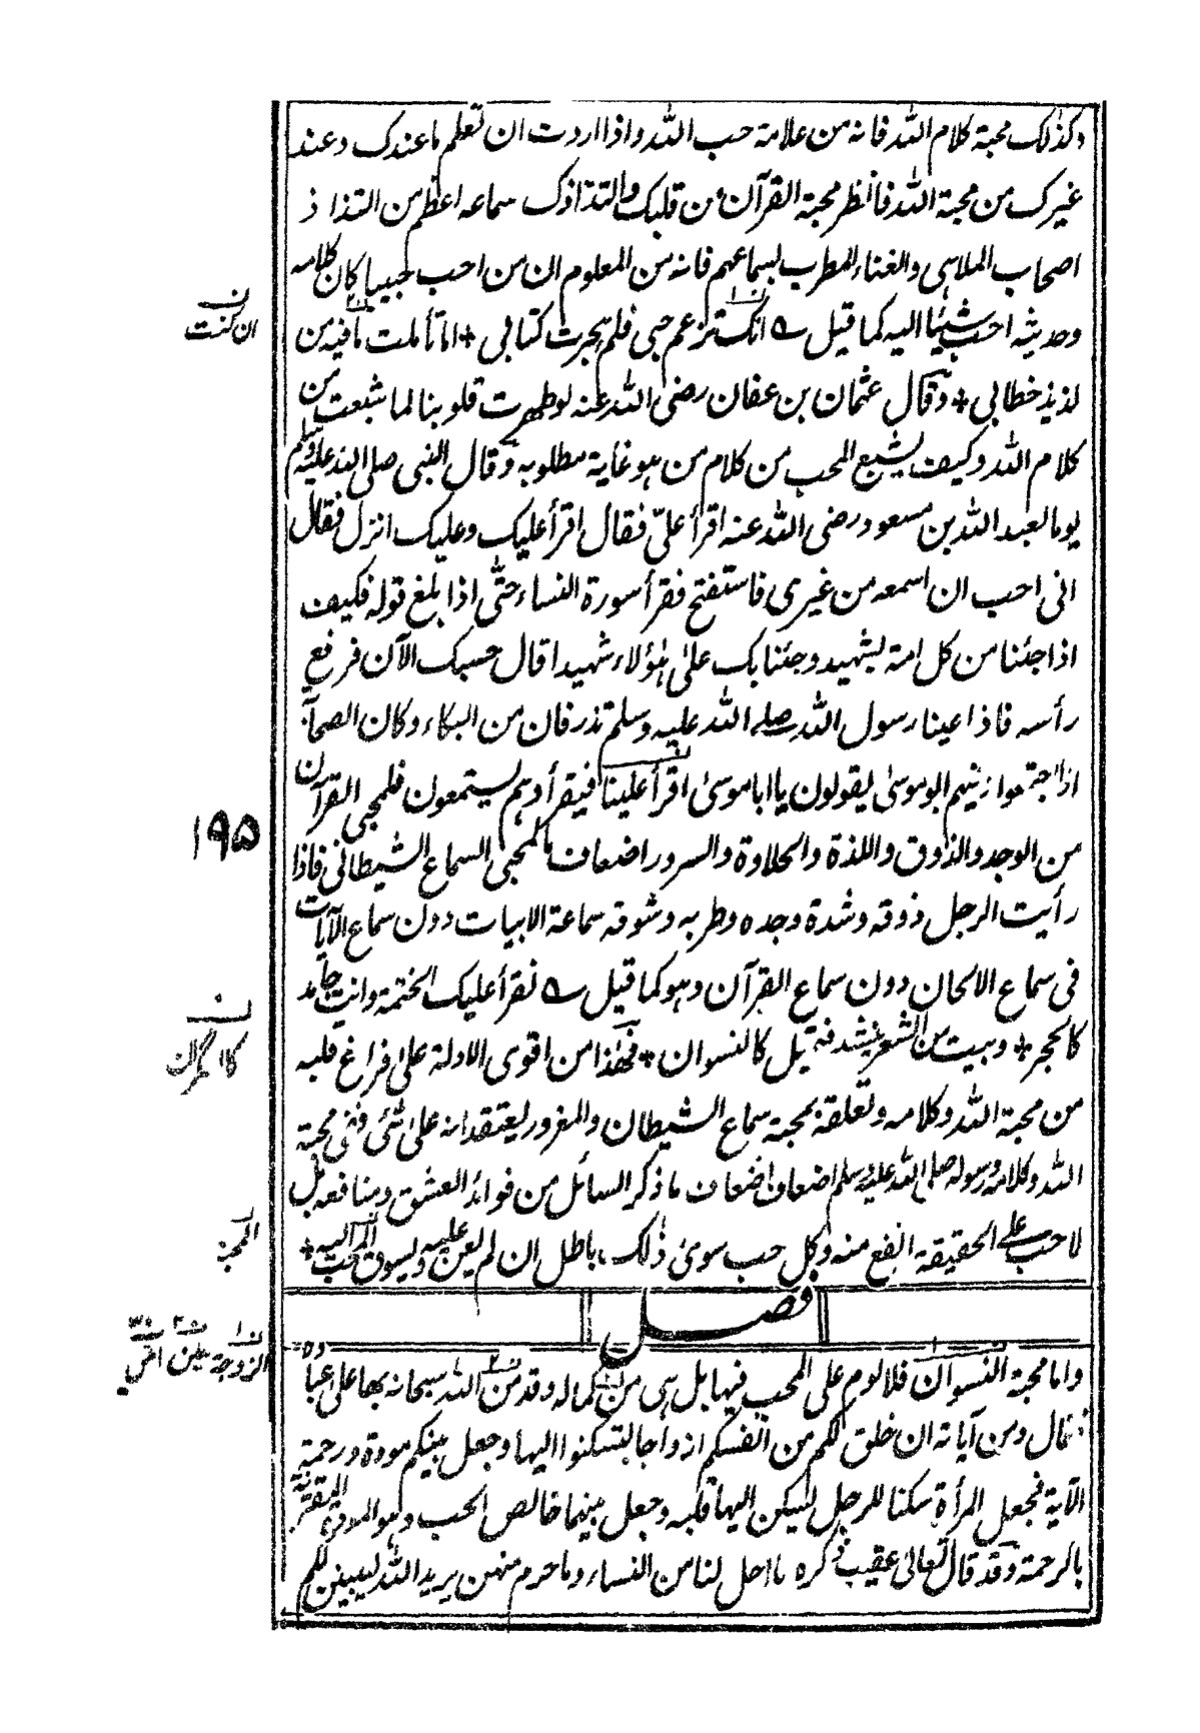 وكذلك محبة كلام الله فانه من علامة حب الله واذا اردت ان تعلم ما عندك وعند
غيرك من محبة الله فانظر محبة القرآن من قلبك والتذاذك سماعه اعظم من التذاذ
اصحاب الملاهى والغناء المطرب بسماعهم فانه من المعلوم ان من احب حبيبا كان كلامه
وحديثه احب شيئا اليه كما قيل ؎ انك تزعم حبى فلم هجرت كتابى + اما تأملت ما فيه من
لذيذ خطابى + وقال عثمان بن عفان رضى الله عنه لو طهرت قلوبنا لما شبعت من
كلام الله وكيف يشبع المحب من كلام من هو غاية مطلوبه وقال النبى صلى الله عليه وسلم
يوما لعبد الله بن مسعود رضى الله عنه اقرأ علىّ فقال اقرأ عليك وعليك انزل فقال
انى احب ان اسمعه من غيرى فاستفتح فقرأ سورة النساء حتّى اذا بلغ قوله فكيف
اذا جئنا من كل امة بشهيد وجئنا بك على هؤلاء شهيدا قال حسبك الآن فرفع
رأسه فاذا عينا رسول الله صلے الله عليه وسلم تذرفان من البكاء وكان الصحابة
اذا اجتمعوا وفيهم ابو موسى يقولون يا ابا موسى اقرأ علينا فيقرأ وهم يستمعون فلمحبى القرآن
من الوجد والذوق واللذة والحلاوة والسرور اضعاف ما لمحبى السماع الشيطانى فاذا
رأيت الرجل ذوقه وشدة وجده وطربه وشوقه سماعة الابيات دون سماع الآيات
فى سماع الالحان دون سماع القرآن وهو كما قيل ؎ نقرأ عليك الختمة وانت جامد
كالحجر + وبيت من الشعر ينشد فتميل كالنسوان + فهذا من اقوى الادلة على فراغ قلبه
من محبة الله وكلامه وتعلقه بمحبة سماع الشيطان والمغرور يعتقد انه على شئ ففى محبة
الله وكلامه ورسوله صلى الله عليه وسلم اضعاف اضعاف ما ذكر السائل من فوائد العشق ومنافعه بل
لا حب على الحقيقة انفع منه وكل حب سوى ذلك باطل ان لم يعن عليه ويسوق المحب اليه +
فصل
واما محبة النسوان فلا لوم على المحب فيها بل هى من كماله وقد من الله سبحانه بها على عباده
فقال ومن آياته ان خلق لكم من انفسكم ازواجا لتسكنوا اليها وجعل بينكم مودة ورحمة
الآية فجعل المرأة سكنا للرجل ليسكن اليها قلبه وجعل بينهما خالص الحب وهو المودة المقترنة
بالرحمة وقد قال تعالى عقيب ذكره ما احل لنا من النساء وما حرم منهن يريد الله ليبين لكم
ان كنت
۱۹۵
الزوجة